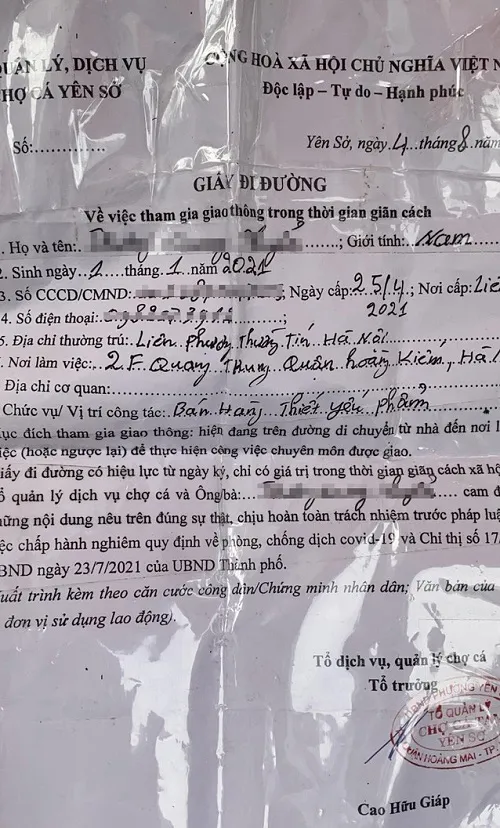 QUẢN LÝ, DỊCH VỤ
CỘNG HOÀ XÃ HỘI CHỦ NGHĨA VIỆT N
HỢ CÁ YÊN SỞ
Độc lập – Tự do – Hạnh phúc
Số:.............
Yên Sở, ngày 4 tháng 8 năm
GIẤY ĐI ĐƯỜNG
Về việc tham gia giao thông trong thời gian giãn cách
1. Họ và tên: ; Giới tính: Nam
2. Sinh ngày 1 tháng 1 năm 2021
3. Số CCCD/CMND: ; Ngày cấp: 25/4 2021; Nơi cấp:
4. Số điện thoại:
5. Địa chỉ thường trú: Liên Phương Thường Tín Hà Nội
Nơi làm việc: 2F Quang Trung Quận Hoàng Kiếm, Hà
Địa chỉ cơ quan:
Chức vụ/ Vị trí công tác: Bán Hàng Thiết yếu phẩm
ục đích tham gia giao thông: hiện đang trên đường di chuyển từ nhà đến nơi l
iệc (hoặc ngược lại) để thực hiện công việc chuyên môn được giao.
iấy đi đường có hiệu lực từ ngày ký, chỉ có giá trị trong thời gian giãn cách xã hộ
ổ quản lý dịch vụ chợ cá và Ông/bà: cam đ
hững nội dung nêu trên đúng sự thật, chịu hoàn toàn trách nhiệm trước pháp luậ
ệc chấp hành nghiêm quy định về phòng, chống dịch covid-19 và Chỉ thị số 17/
BND ngày 23/7/2021 của UBND Thành phố.
uất trình kèm theo căn cước công dân/Chứng minh nhân dân; Văn bản của
đơn vị sử dụng lao động).
Tổ dịch vụ, quản lý chợ cá
Tổ trưởng
TỔ QUẢN LÝ
CHỢ CÁ
YÊN SỞ
QUẬN HOÀNG MAI - TP.
Cao Hữu Giáp